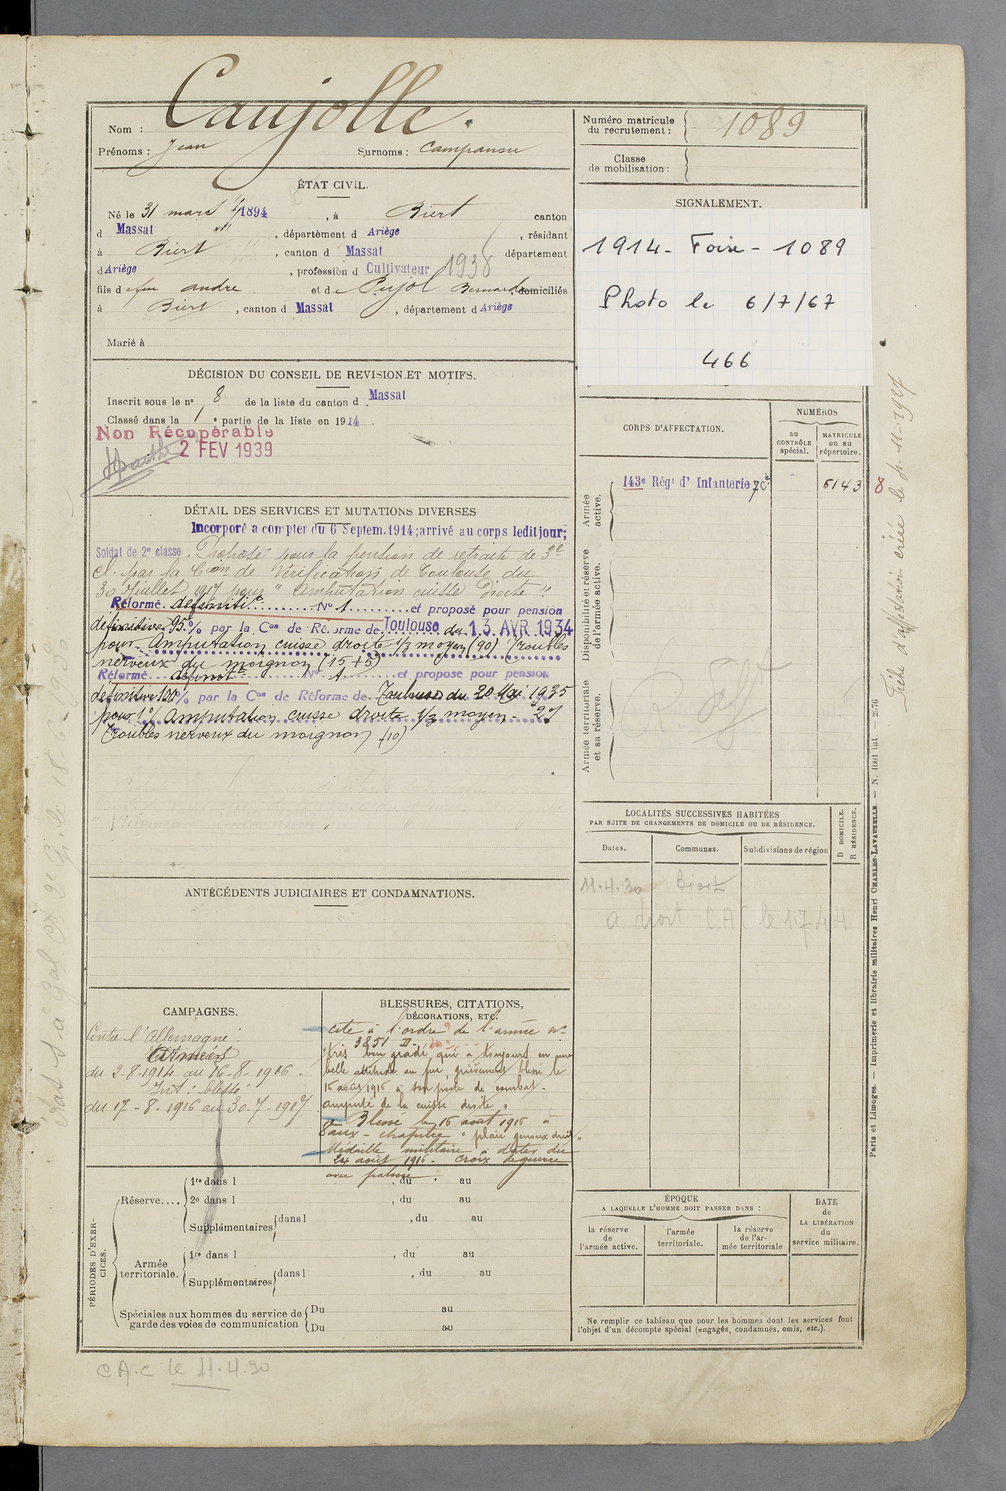 Nom : Caujolle.
Prénoms : Jean Surnoms : Campansu
Numéro matricule du recrutement : 1089
Classe de mobilisation :
ÉTAT CIVIL.
Né le 31 mars 1894, à Biert canton
d Massat, département d Ariège, résidant
à Biert, canton d Massat département
d Ariège, profession d Cultivateur 1938
fils d feu andre et de Pujol Bernarde domiciliés
à Biert, canton d Massat, département d Ariège
Marié à
SIGNALEMENT.
1914 - Foix - 1089
Photo le 6/7/67
466
DÉCISION DU CONSEIL DE REVISION ET MOTIFS.
Inscrit sous le n° 8 de la liste du canton d Massat
Classé dans la 1 e partie de la liste en 1914.
Non Récupérable
2 FEV 1939
CORPS D'AFFECTATION.
NUMÉROS
au CONTRÔLE spécial.
MATRICULE ou au répertoire.
Armée active.
143e Régt d' Infanterie 7e Cie 6143 8
Disponibilité et réserve de l'armée active.
Armée territoriale et sa réserve.
Fiche d'affectation créée le 4-11-1927
DÉTAIL DES SERVICES ET MUTATIONS DIVERSES
Incorporé a compter du 6 Septem. 1914; arrivé au corps ledit jour;
Soldat de 2e classe. Proposé pour la pension de retraite de 3e
cl. par la Con de Vérification de Toulouse du
30 Juillet 1917 pour "amputation cuisse droite"
Réformé définitif N° 1 et proposé pour pension
définitive 95% par la Con de Réforme de Toulouse du 13 AVR 1934
pour Amputation cuisse droite 1/3 moyen (90) Troubles
nerveux du moignon (15+5)
Réformé définit N° 1 et proposé pour pension
définitive 100% par la Con de Réforme de Toulouse du 20 Mai 1935
pour 1°/ Amputation cuisse droite 1/3 moyen - 2°/
Troubles nerveux du moignon (10)
LOCALITÉS SUCCESSIVES HABITÉES
PAR SUITE DE CHANGEMENTS DE DOMICILE OU DE RÉSIDENCE.
Dates. Communes. Subdivisions de région
D DOMICILE. R RÉSIDENCE.
11.4.30 Biert
a droit C.A.C le 1.7.44
ANTÉCÉDENTS JUDICIAIRES ET CONDAMNATIONS.
CAMPAGNES.
Contre l'Allemagne :
Armées
du 2-8-1914 au 16-8-1916.
Int : blessé
du 17-8-1916 au 30-7-1917
BLESSURES, CITATIONS,
DÉCORATIONS, ETC.
cité à l'ordre de l'armée n°
3851 D.
"très bon gradé, qui a toujours eu une
belle attitude au feu, grièvement blessé le
16 août 1916 à son poste de combat -
amputé de la cuisse droite"
Blessé le 16 août 1916 à
Vaux-chapitre "plaie genoux droit"
Médaille militaire à dater du
24 août 1916. Croix de guerre
avec palme.
PÉRIODES D'EXERCICES.
Réserve.... 1re dans l , du au
2e dans l , du au
Supplémentaires dans l , du au
Armée territoriale. 1re dans l , du au
Supplémentaires dans l , du au
Spéciales aux hommes du service de garde des voies de communication Du au
Du au
ÉPOQUE
A LAQUELLE L'HOMME DOIT PASSER DANS :
la réserve de l'armée active.
l'armée territoriale.
la réserve de l'armée territoriale
DATE de LA LIBÉRATION du service militaire.
Ne remplir ce tableau que pour les hommes dont les services font
l'objet d'un décompte spécial (engagés, condamnés, omis, etc.).
Paris et Limoges. — Imprimerie et librairie militaires Henri CHARLES-LAVAUZELLE. — N. 1001 int. — 2/76
C.A.C le 11.4.30